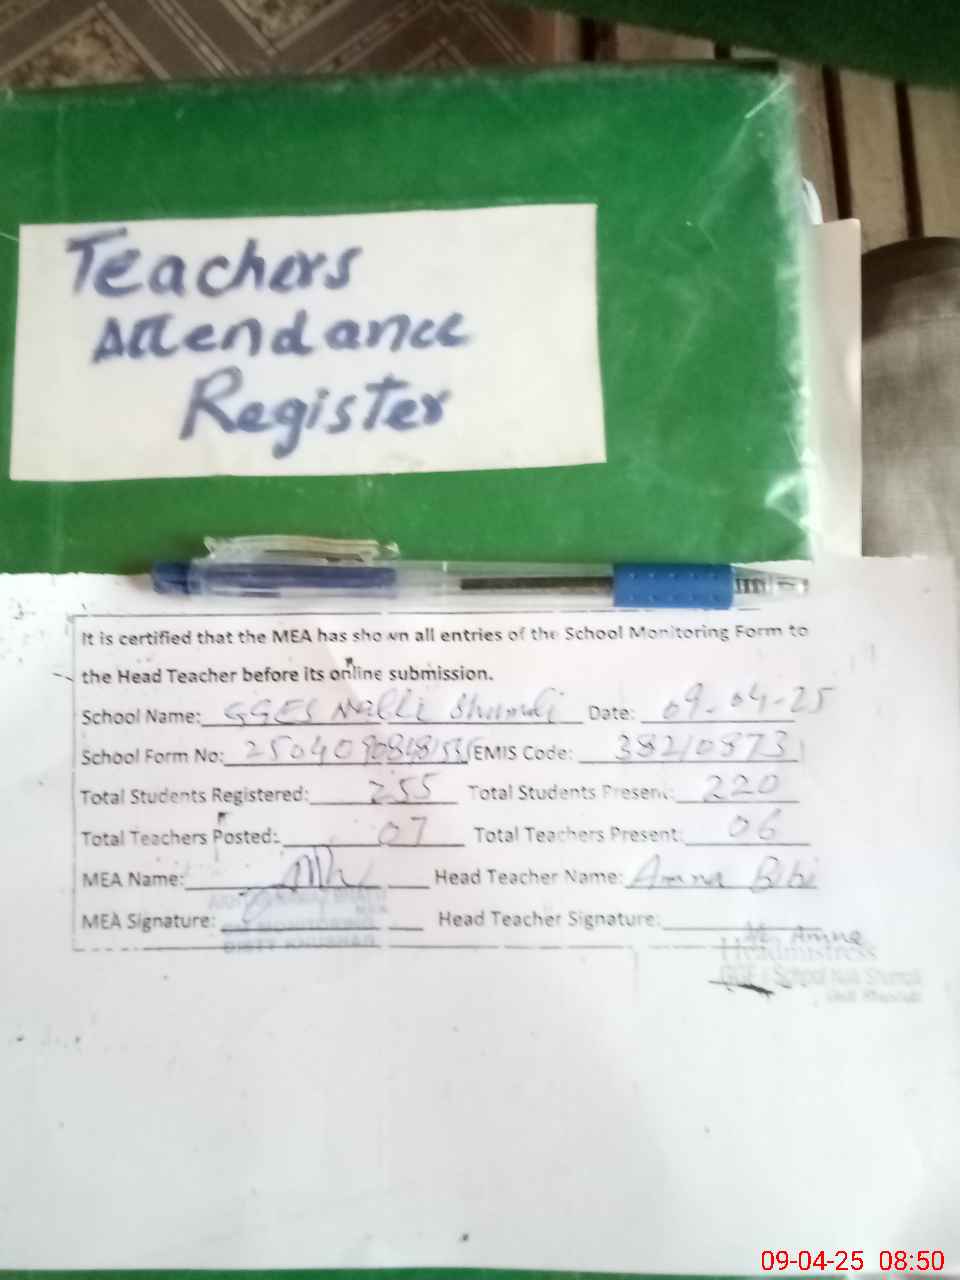 Teachers
Attendance
Register
It is certified that the MEA has shown all entries of the School Monitoring Form to
the Head Teacher before its online submission.
School Name: GGES Nalli Shumali Date: 09-04-25
School Form No: EMIS Code: 38210873
Total Students Registered: 255 Total Students Present: 220
Total Teachers Posted: 07 Total Teachers Present: 06
MEA Name: Head Teacher Name: Amna Bibi
MEA Signature: Head Teacher Signature:
Amna
Headmistress
School Nalli Shumali
09-04-25 08:50